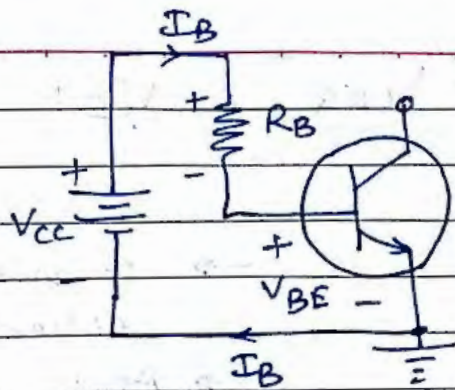 I_B
+
R_B
+
-
V_CC
+
-
V_BE -
I_B